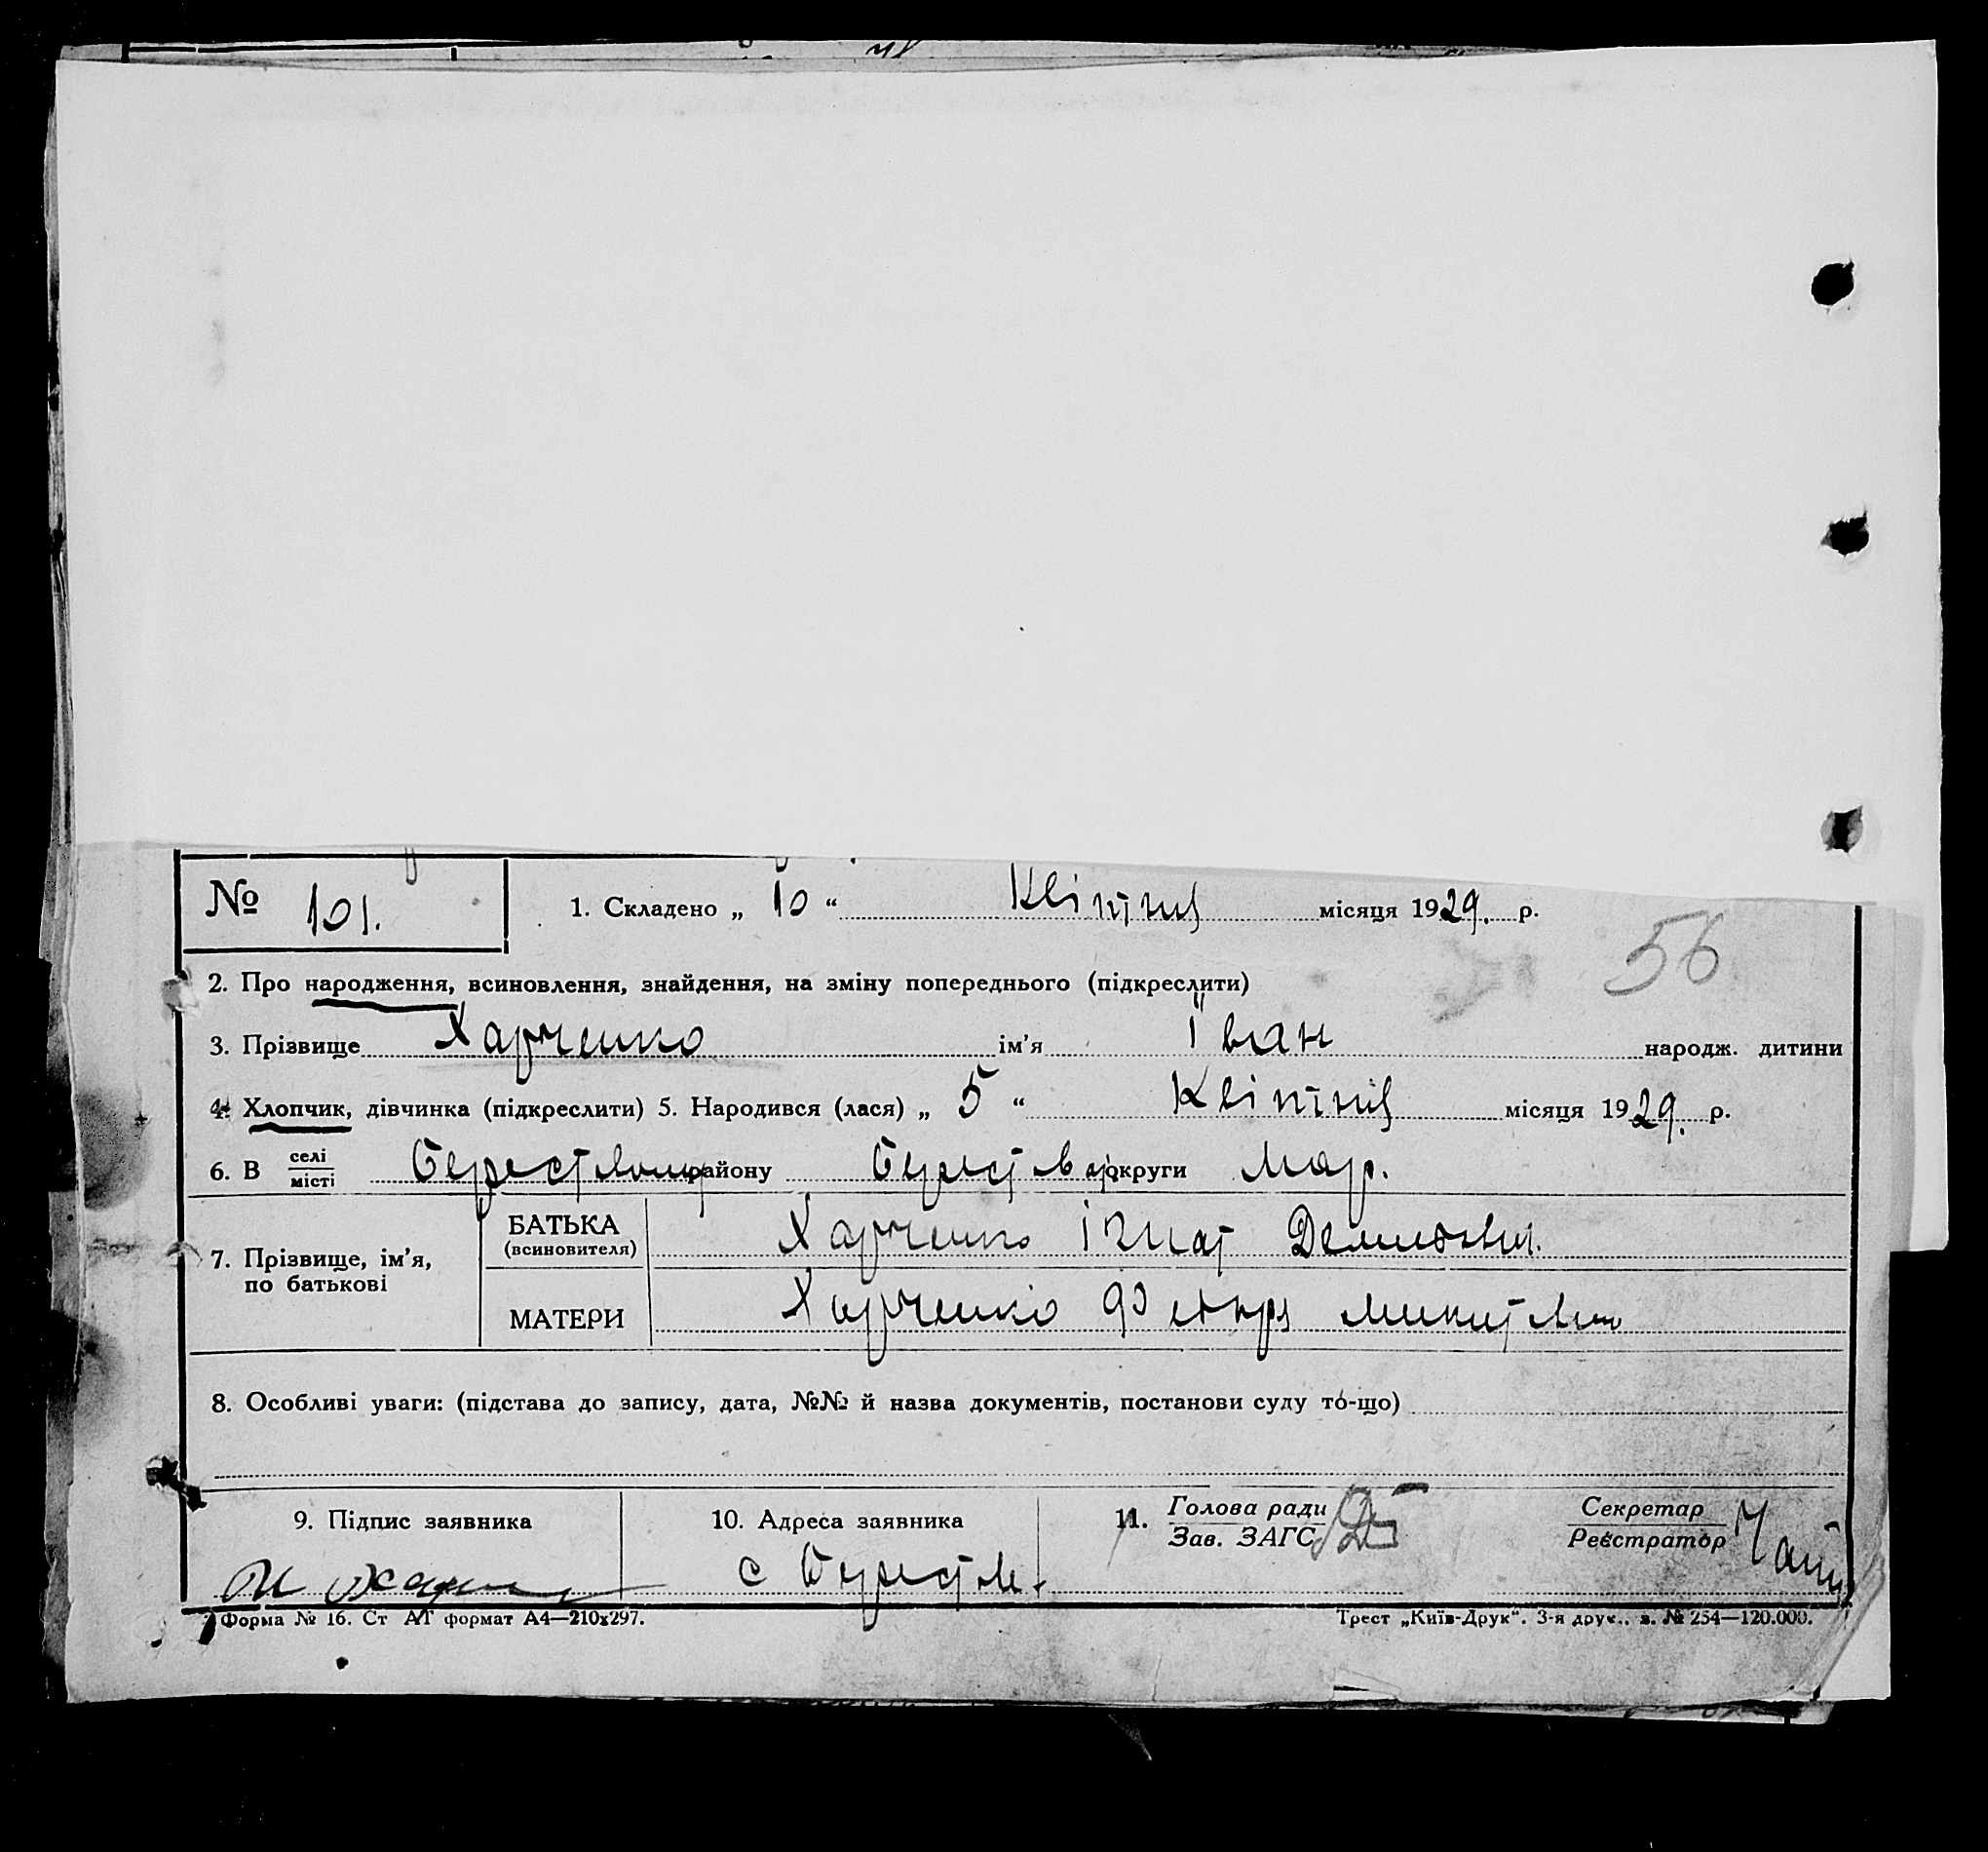 № 101. 1. Складено „ 10 “ Квітня місяця 1929. р.
56
2. Про народження, всиновлення, знайдення, на зміну попереднього (підкреслити)
3. Прізвище Харченко ім'я Іван народж. дитини
4. Хлопчик, дівчинка (підкреслити) 5. Народився (лася) „ 5 “ Квітня місяця 1929. р.
6. В селі/місті району округи Мар.
7. Прізвище, ім'я, по батькові
БАТЬКА (всиновителя) Харченко Ігнат
МАТЕРИ Харченко
8. Особливі уваги: (підстава до запису, дата, №№ й назва документів, постанови суду то-що)
9. Підпис заявника 10. Адреса заявника 11. Голова ради/Зав. ЗАГС Секретар/Реєстратор
с
Форма № 16. Ст АТ формат А4—210х297. Трест „Київ-Друк“. 3-я друк.. з. № 254—120.000.